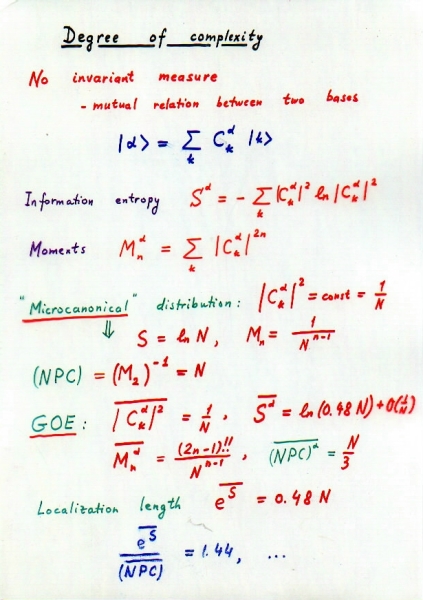 Degree of complexity
No invariant measure
- mutual relation between two bases
|α> = Σ_k C_k^α |k>
Information entropy S^α = - Σ_k |C_k^α|² ln |C_k^α|²
Moments M_n^α = Σ_k |C_k^α|^{2n}
"Microcanonical" distribution: |C_k^α|² = const = 1/N
⇓ S = ln N, M_n = 1/N^{n-1}
(NPC) = (M_2)^{-1} = N
GOE: \overline{|C_k^α|²} = 1/N, \overline{S^α} = ln (0.48 N) + O(1/N)
\overline{M_n^α} = (2n-1)!!/N^{n-1}, \overline{(NPC)^α} = N/3
Localization length e^{\overline{S}} = 0.48 N
e^{\overline{S}}/\overline{(NPC)} = 1.44, ...